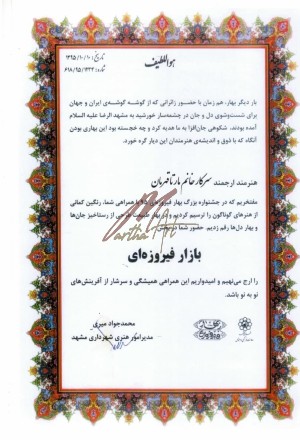 هواللطیف
تاریخ: ۱۳۹۵/۱۰/۱۰
شماره: ۶۱۸/۹۵/۱۴۳۴
بار دیگر بهار، هم زمان با حضور زائرانی که از گوشه گوشه‌ی ایران و جهان
برای شست‌وشوی دل و جان در چشمه‌سار خورشید به مشهد الرضا علیه السلام
آمده بودند، شکوهی جان‌افزا به ما هدیه کرد و چه خجسته بود این بهاری بودن
آنگاه که با ذوق و اندیشه‌ی هنرمندان این دیار گره خورد.
هنرمند ارجمند سرکار خانم مارتا قهرمان
مفتخریم که در جشنواره بزرگ بهار فیروزه‌ای ۹۵ با همراهی شما، رنگین کمانی
از هنرهای گوناگون را ترسیم کردیم و در بهار طبیعت طرحی از رستاخیز جان‌ها
و بهار دل‌ها رقم زدیم. حضور شما در بخش
بازار فیروزه‌ای
را ارج می‌نهیم و امیدواریم این همراهی همیشگی و سرشار از آفرینش‌های
نو به نو باشد.
محمدجواد میری
مدیرامور هنری شهرداری مشهد
Martha Art